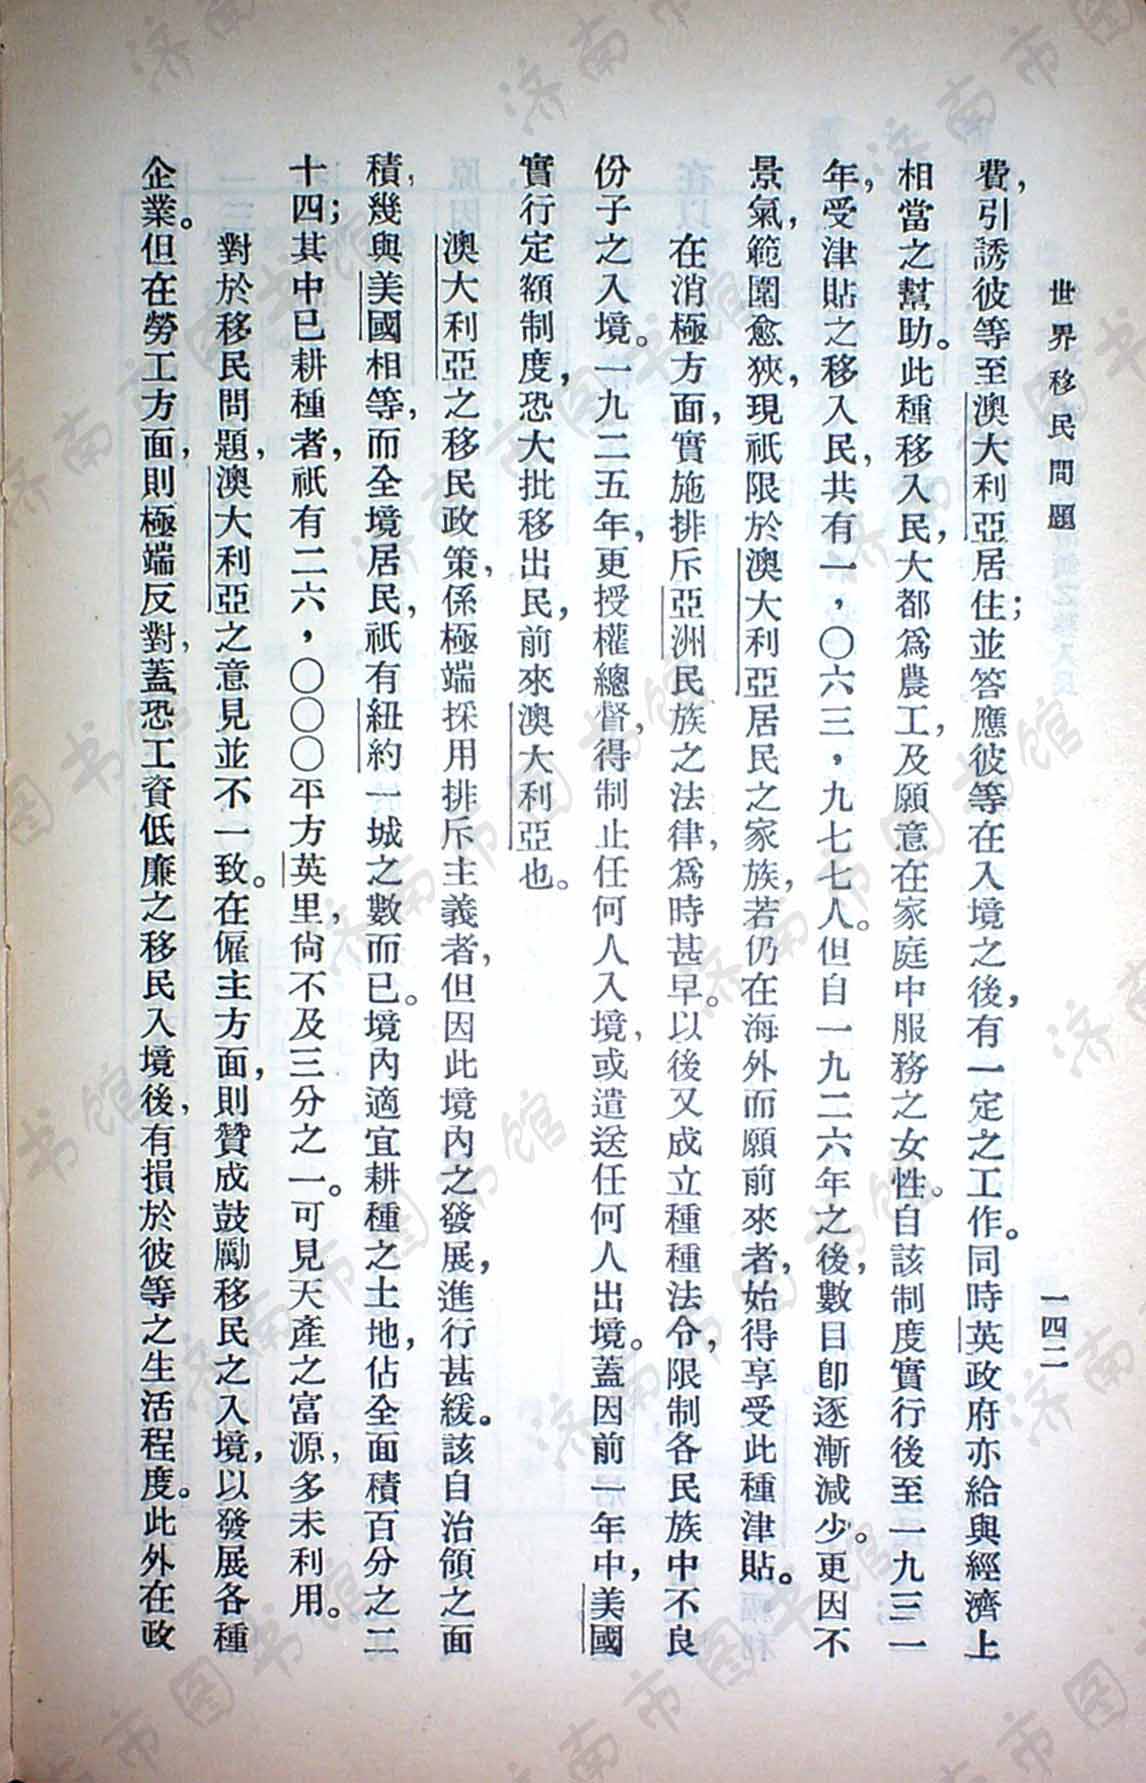 世界移民問題
一四二
費，引誘彼等至澳大利亞居住；並答應彼等在入境之後，有一定之工作。同時英政府亦給與經濟上
相當之幫助。此種移入民，大都爲農工，及願意在家庭中服務之女性。自該制度實行後至一九三一
年，受津貼之移入民，共有一，〇六三，九七七人。但自一九二六年之後，數目卽逐漸減少。更因不
景氣，範圍愈狹，現祇限於澳大利亞居民之家族，若仍在海外而願前來者，始得享受此種津貼。
在消極方面，實施排斥亞洲民族之法律，爲時甚早。以後又成立種種法令，限制各民族中不良
份子之入境。一九二五年，更授權總督，得制止任何人入境，或遣送任何人出境。蓋因前一年中，美國
實行定額制度，恐大批移出民，前來澳大利亞也。
澳大利亞之移民政策，係極端採用排斥主義者，但因此境內之發展，進行甚緩。該自治領之面
積，幾與美國相等，而全境居民，祇有紐約一城之數而已。境內適宜耕種之土地，佔全面積百分之二
十四；其中已耕種者，祇有二六，〇〇〇平方英里，尙不及三分之一。可見天產之富源，多未利用。
對於移民問題，澳大利亞之意見並不一致。在僱主方面，則贊成鼓勵移民之入境，以發展各種
企業。但在勞工方面，則極端反對，蓋恐工資低廉之移民入境後，有損於彼等之生活程度。此外在政
济南市图书馆